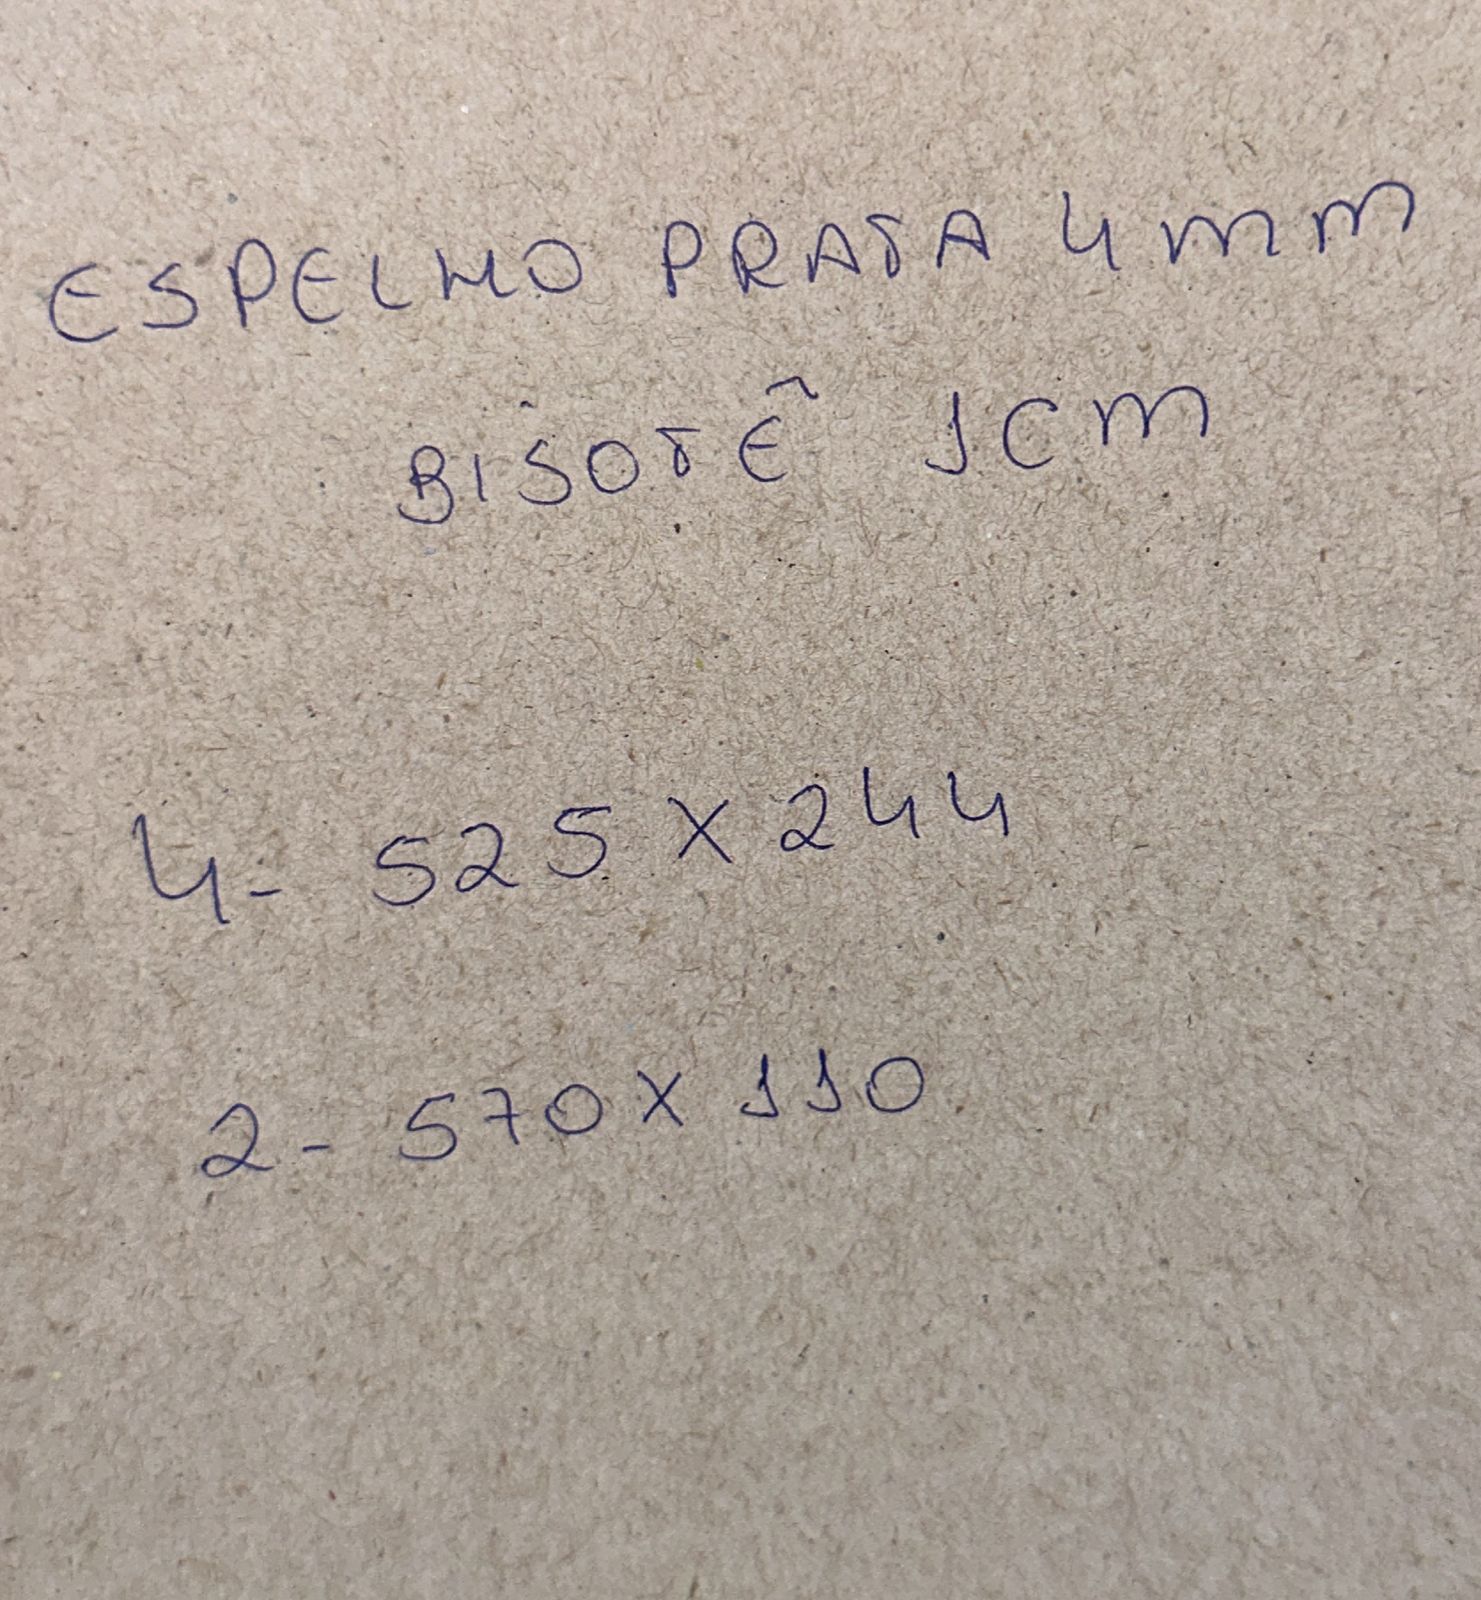 ESPELHO PRATA 4mm
BISOTÊ 1cm
4- 525 X 244
2- 570 X 110